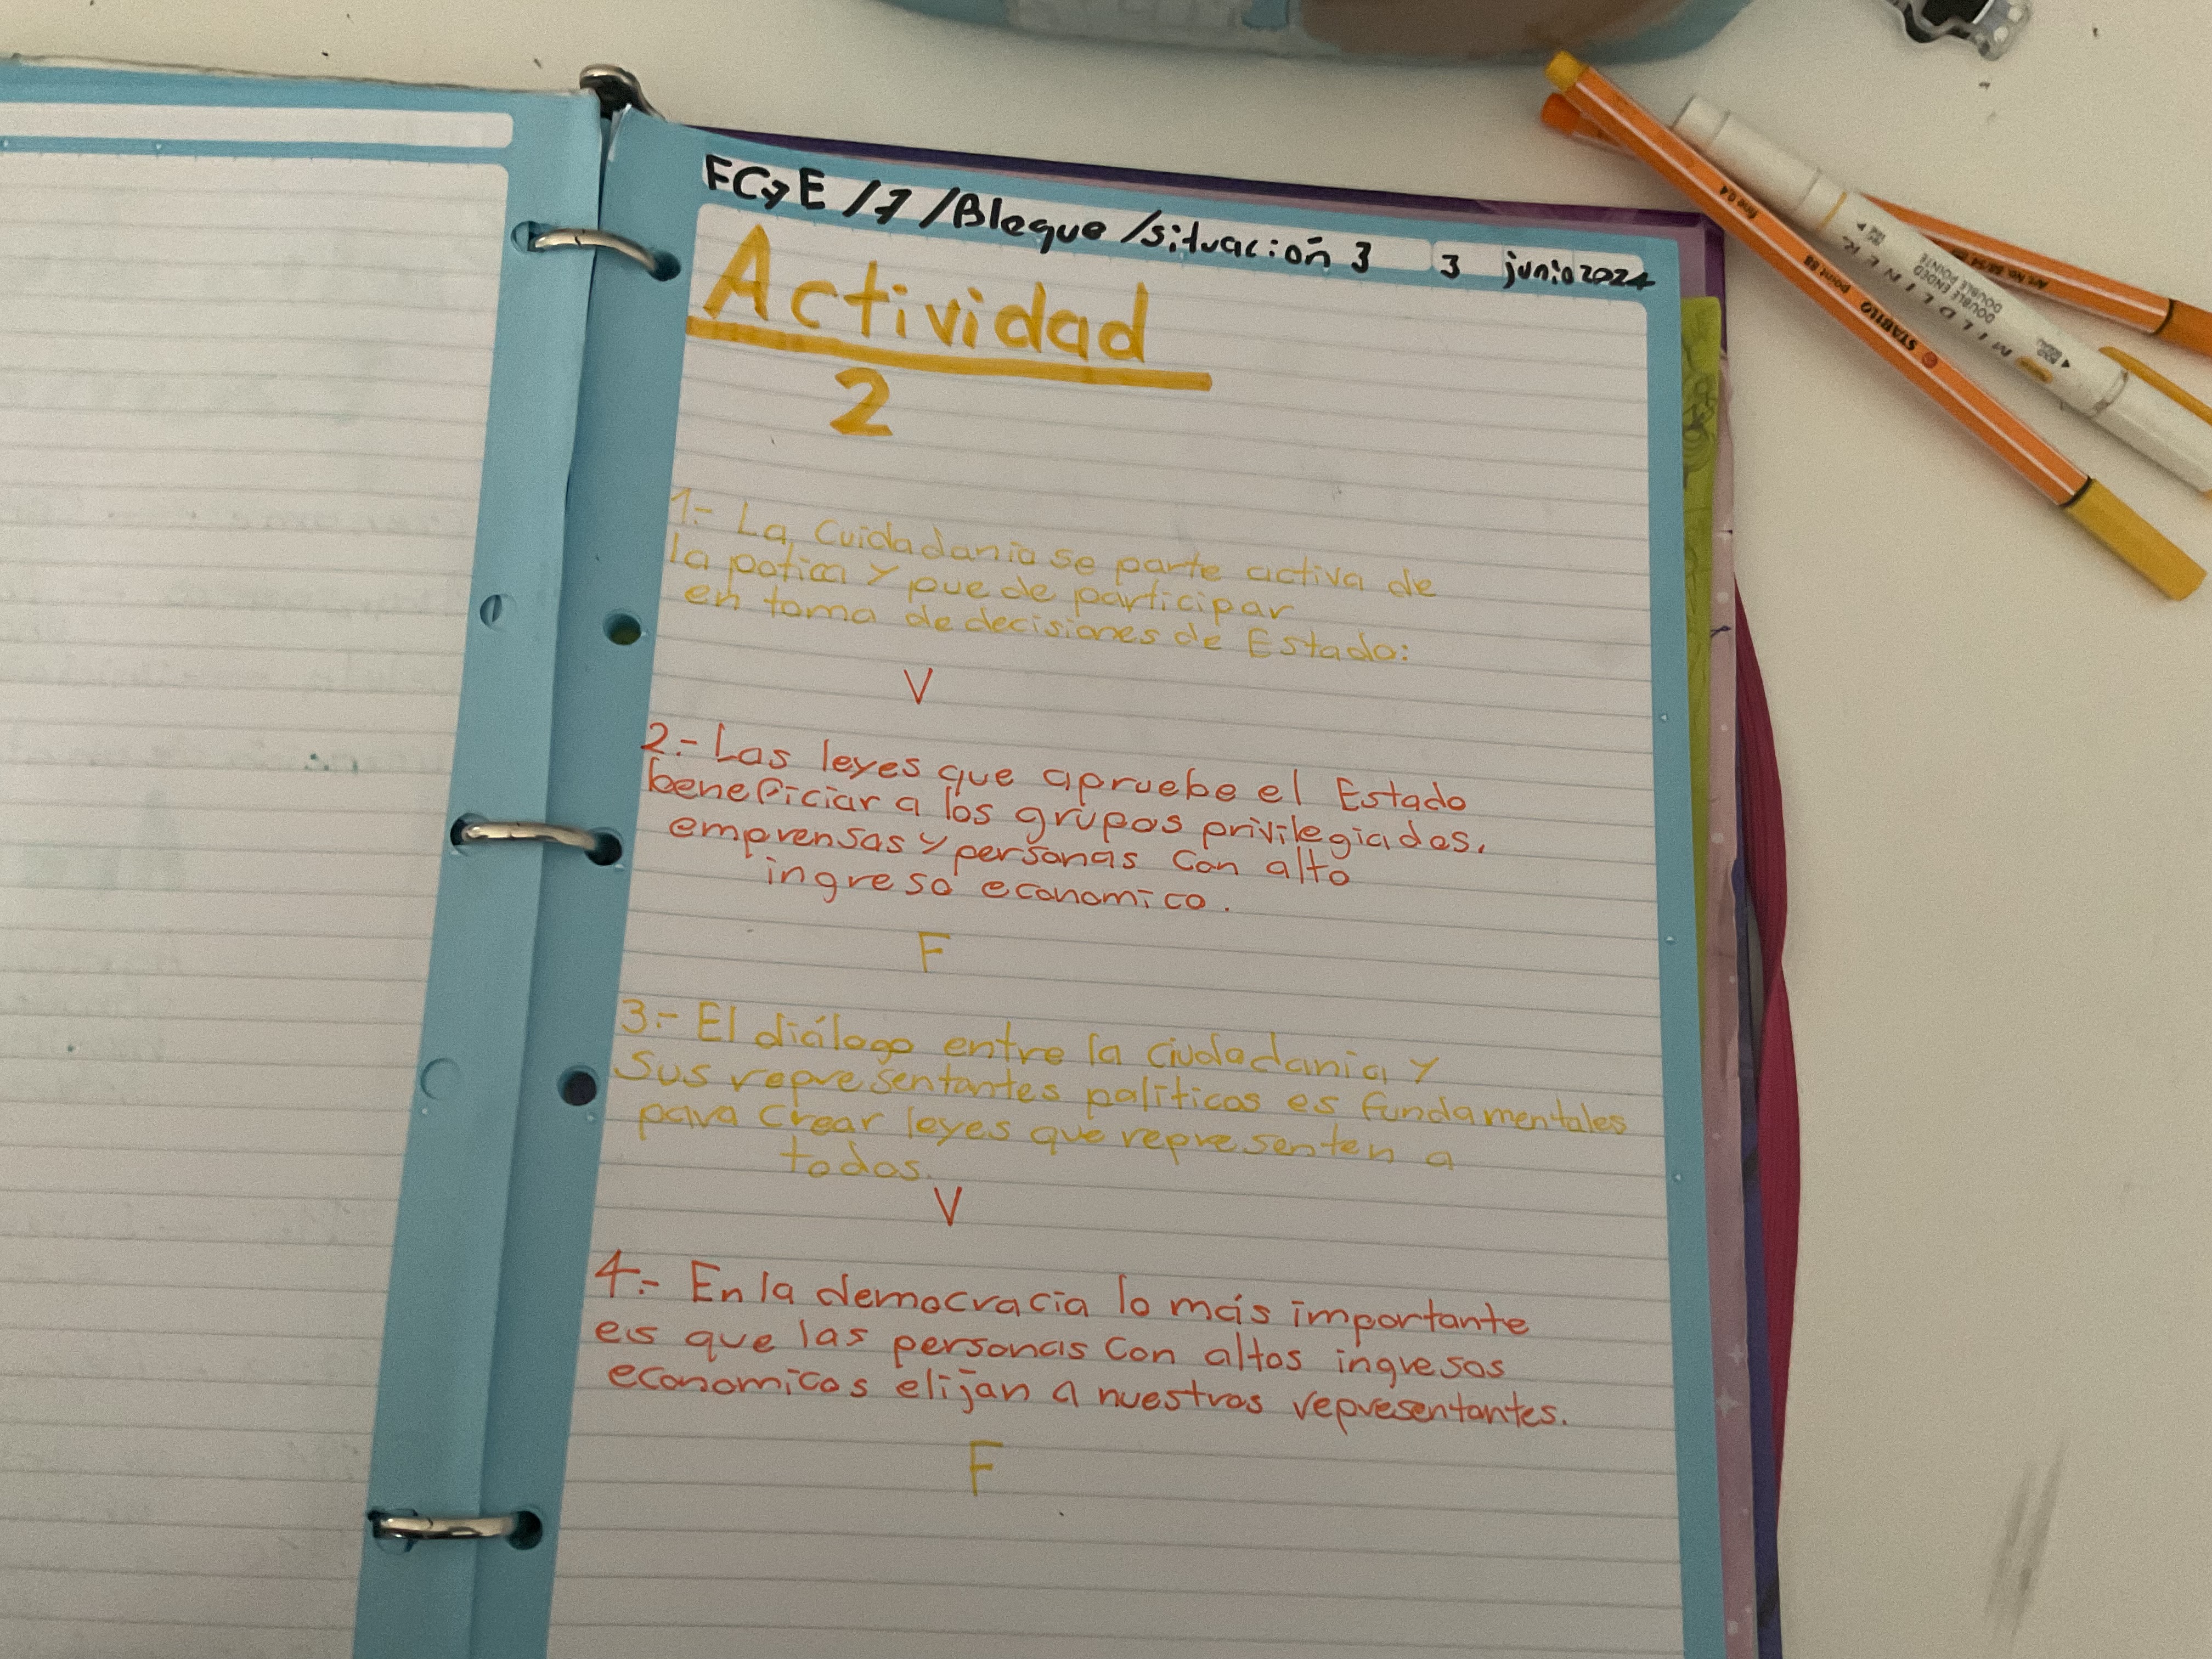 FCyE /7 /Bloque /situación 3 3 junio 2024
Actividad
2
1.- La Cuidadania se parte activa de
la potica y puede participar
en toma de decisiones de Estado:
V
2.- Las leyes que apruebe el Estado
beneficiar a los grupos privilegiados.
emprensas y personas con alto
ingreso economico.
F
3.- El diálogo entre la ciudadania y
sus representantes politicos es fundamentales
para crear leyes que representen a
todos.
V
4.- En la democracia lo más importante
es que las personas con altos ingresos
economicos elijan a nuestros representantes.
F
fine 0,4
STABILO point 88
MILDLINER
DOUBLE ENDED
DOUBLE POINTE